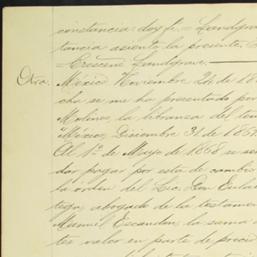 constancia doy fe.= Landgrave
tancia asiento la presente.
=Crescent Landgrave.=
Otra. México Noviembre 24 de 18
cha se me ha presentado por
Molinos, la libranza del ten
"México, Diciembre 31 de 1867
Al 1º de Mayo de 1868 se ser
dar pagar por esta de cambio
la orden del Lic. Don Eula
tega, abogado de la testamen
Manuel Escandon, la suma d
tes valor en parte de precio